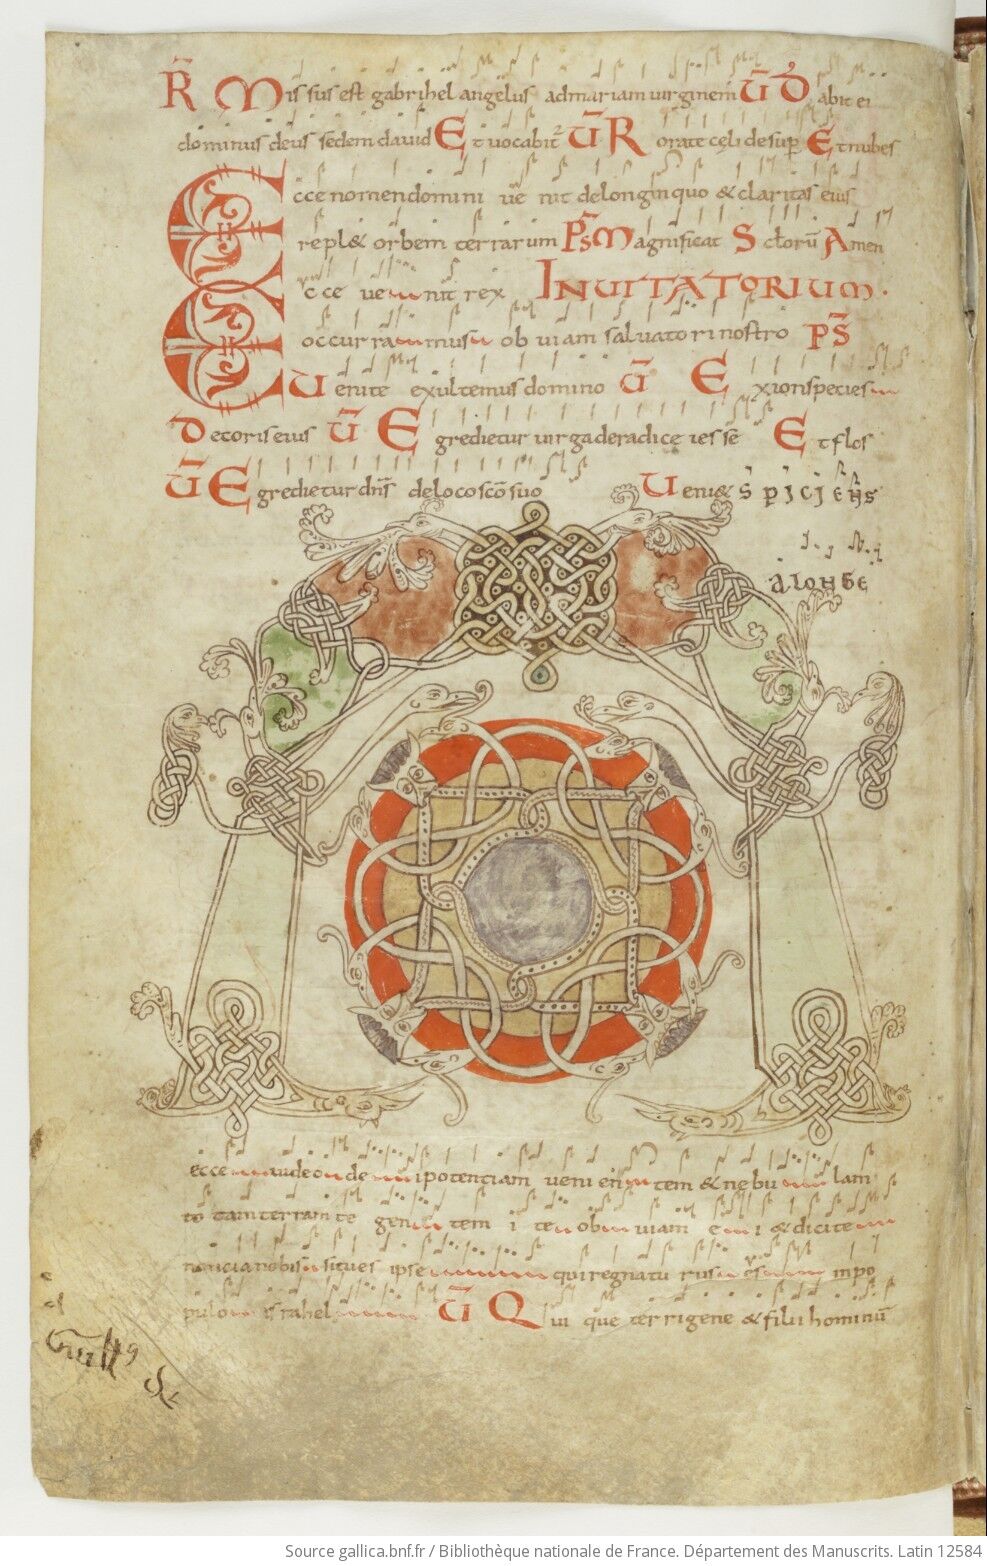 R̃ Missus est gabrihel angelus ad mariam uirginem Ṽ Dabit ei
dominus deus sedem dauid Et uocabit᷑ Ṽ Rorate cęli desup Et nubes
Ecce nomen domini ue nit de longinquo & claritas eius
repl& orbem terrarum Ps̃ Magnificat S ctoru᷑ Amen
Ecce ue nit rex INUITATORIUM.
occurra mus ob uiam saluatori nostro Ps̃
Uenite exultemus domino Ṽ Exion species
Decoris eius Ṽ Egredietur uirga de radice iesse Et flos
Ṽ Egredietur dn̄s de loco sc̄o suo Ueni& Spiciens
a longe
ecce uideo de i potentiam ueni en tem & nebu lam
to tam terram te gen tem i te ob uiam e i & dicite
nuncia nobis si tu es ipse qui regnatu rus es in po
pulo israhel Ṽ Qui que terrigene & filii hominū
Source gallica.bnf.fr / Bibliothèque nationale de France. Département des Manuscrits. Latin 12584